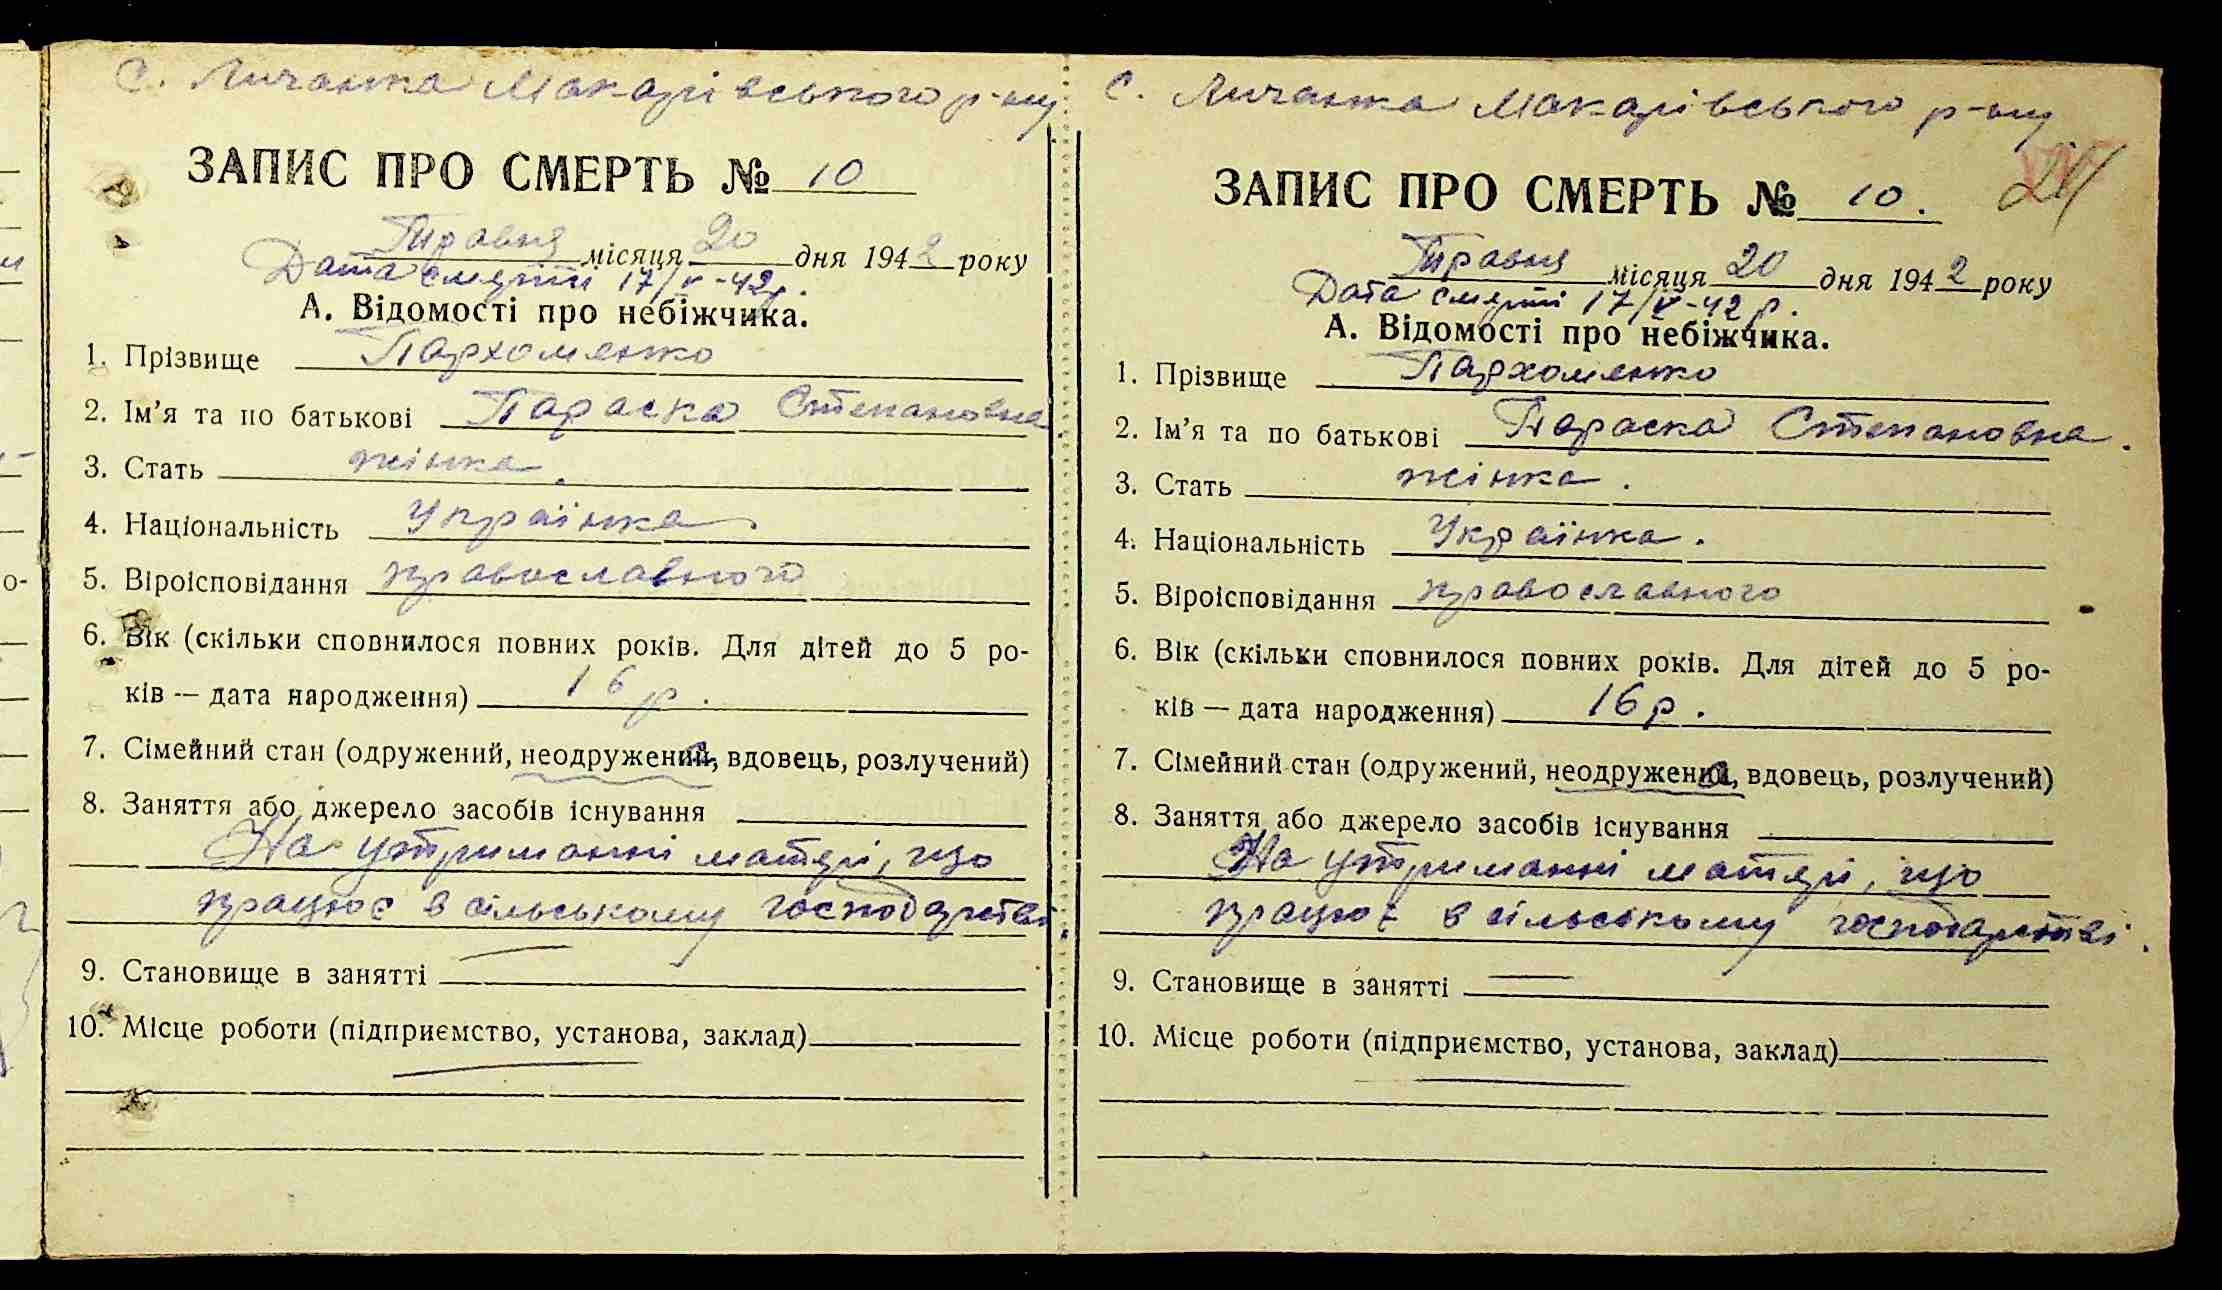 с. Личанка Макарівського р-ну
ЗАПИС ПРО СМЕРТЬ № 10
Травня місяця 20 дня 1942 року
Дата смерті 17/V-42р.
А. Відомості про небіжчика.
1. Прізвище Пархоменко
2. Ім'я та по батькові Параска Степановна.
3. Стать жінка.
4. Національність Українка.
5. Віроісповідання православного
6. Вік (скільки сповнилося повних років. Для дітей до 5 ро-
ків — дата народження) 16 р.
7. Сімейний стан (одружений, неодружена, вдовець, розлучений)
8. Заняття або джерело засобів існування
На утриманні матері, що
працює в сільському господарстві.
9. Становище в занятті —
10. Місце роботи (підприємство, установа, заклад)
—
с. Личанка Макарівського р-ну
ЗАПИС ПРО СМЕРТЬ № 10.
Травня місяця 20 дня 1942 року
Дата смерті 17/V-42 р.
А. Відомості про небіжчика.
1. Прізвище Пархоменко
2. Ім'я та по батькові Параска Степановна.
3. Стать жінка.
4. Національність Українка.
5. Віроісповідання православного
6. Вік (скільки сповнилося повних років. Для дітей до 5 ро-
ків — дата народження) 16 р.
7. Сімейний стан (одружений, неодружена, вдовець, розлучений)
8. Заняття або джерело засобів існування
На утриманні матері, що
працює в сільському господарстві.
9. Становище в занятті —
10. Місце роботи (підприємство, установа, заклад)
—